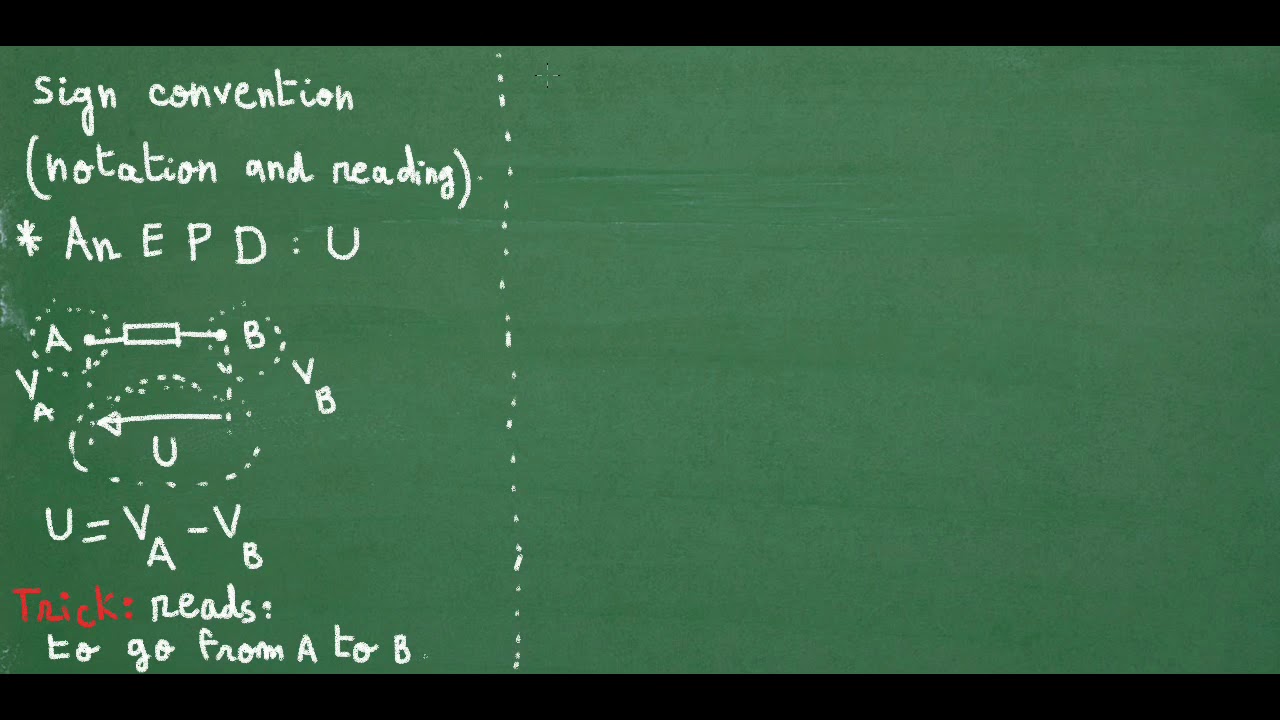 Sign convention
(notation and reading)
* An E P D : U
A B
V_A V_B
U
U = V_A - V_B
Trick: reads:
to go from A to B